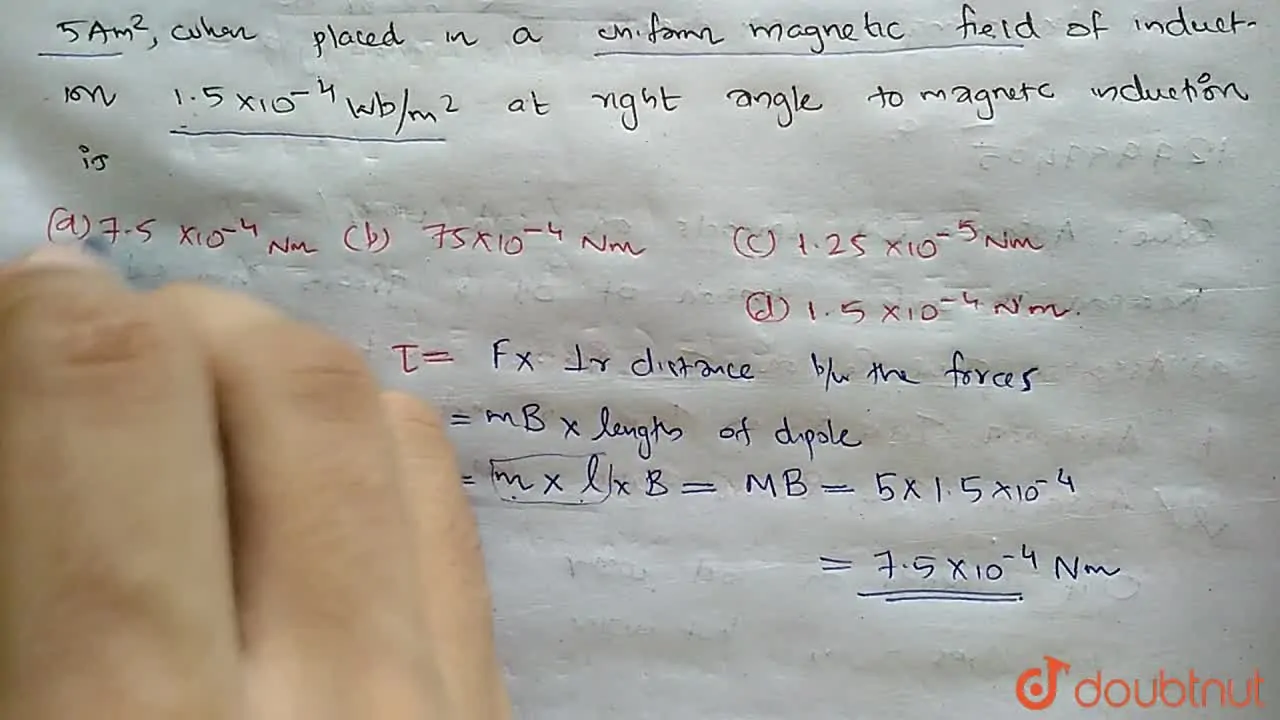 5Am², when placed in a uniform magnetic field of induct-
ion 1.5×10⁻⁴ wb/m² at right angle to magnetc induction
is
(a) 7.5 ×10⁻⁴ Nm (b) 75×10⁻⁴ Nm (c) 1.25 ×10⁻⁵ Nm
(d) 1.5 ×10⁻⁴ Nm.
τ = F× ⊥r distance b/w the forces
= mB × length of dipole
= m × l × B = MB = 5×1.5×10⁻⁴
= 7.5×10⁻⁴ Nm
doubtnut